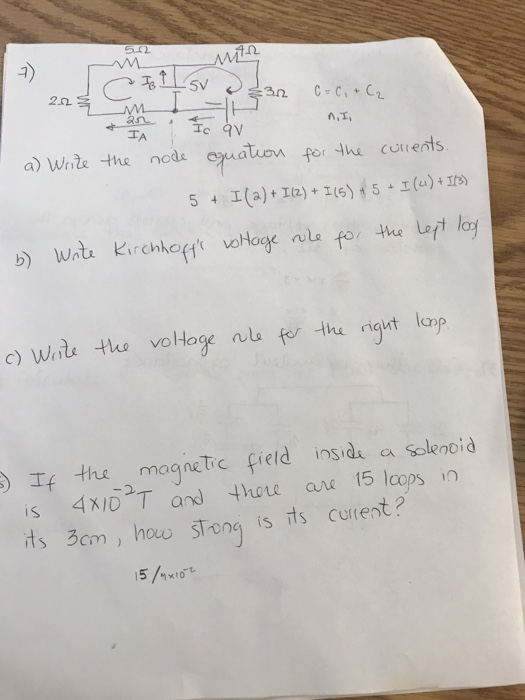 5Ω 4Ω
7) I_B 5V
2Ω 3Ω C = C₁ + C₂
2Ω n, I,
I_A I_C 9V
a) Write the node equation for the currents.
5 + I(2) + I(2) + I(5) + 5 + I(4) + I(3)
b) Write Kirchhoff's voltage rule for the left loop
c) Write the voltage rule for the right loop
) If the magnetic field inside a solenoid
is 4x10⁻²T and there are 15 loops in
its 3cm, how strong is its current?
15/4x10⁻²